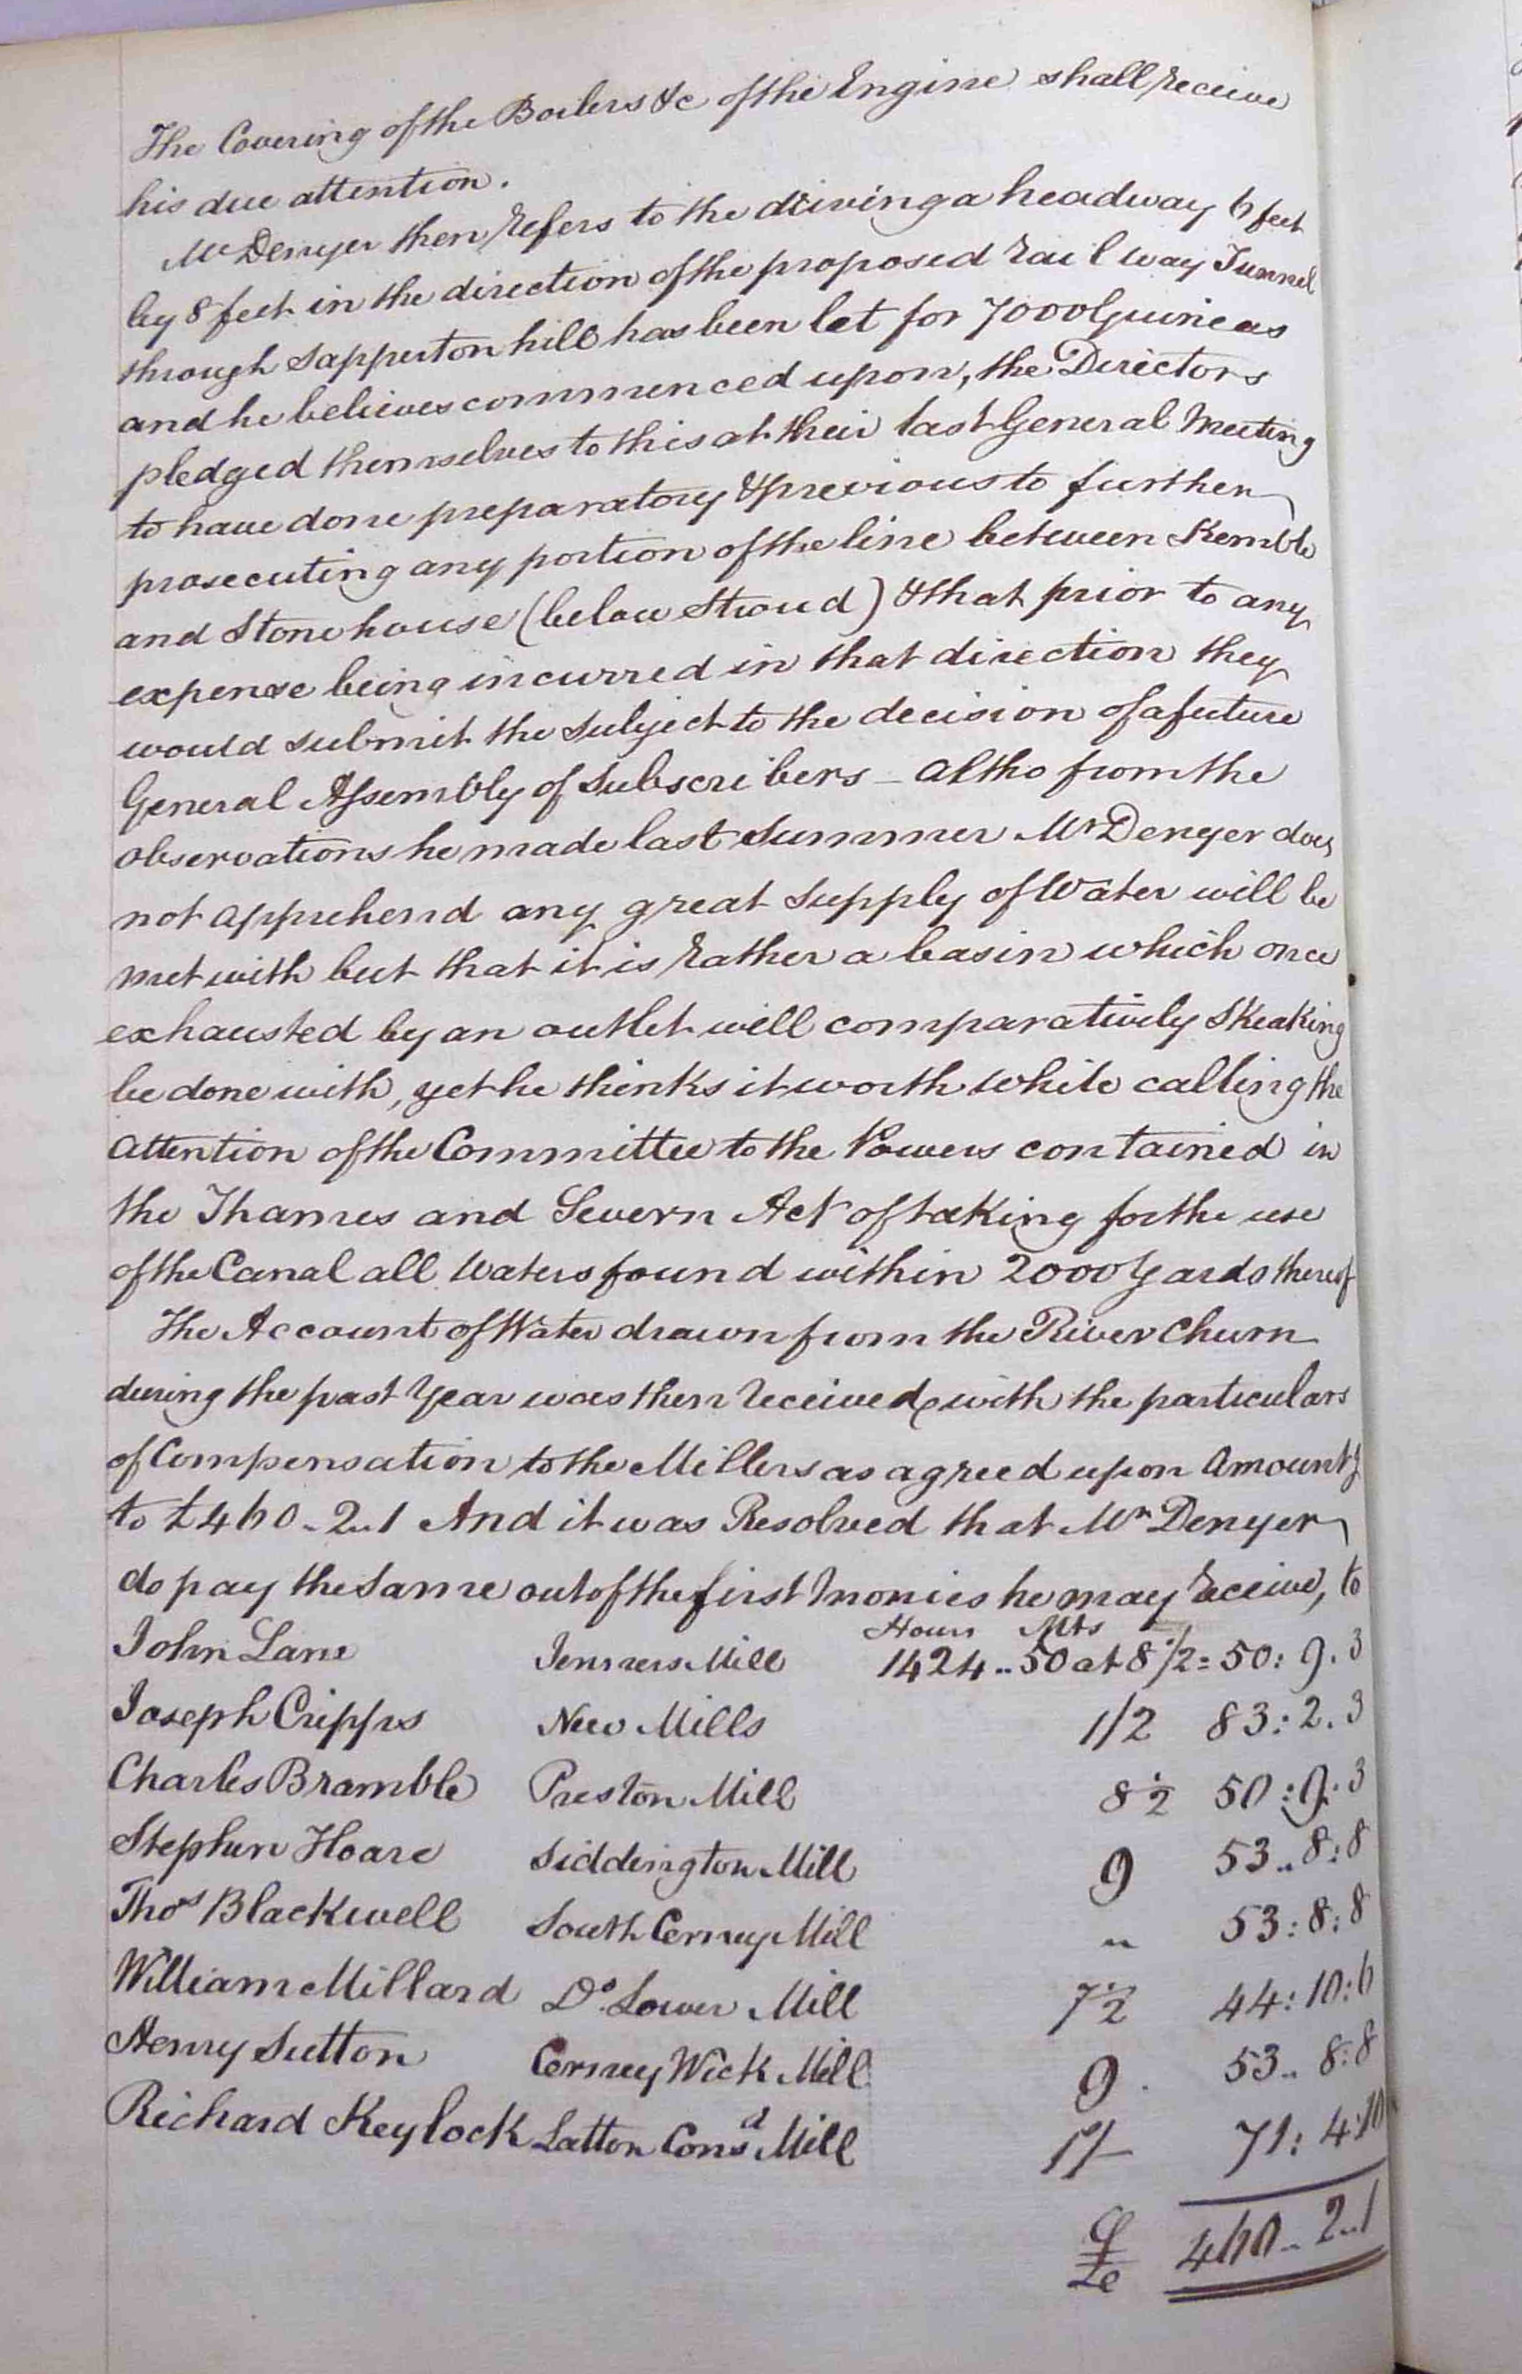 The Covering of the Boilers &c of the Engine shall receive
his due attention.
Mr Denyer then refers to the driving a headway 6 feet
by 8 feet in the direction of the proposed railway Tunnel
through Sapperton hill has been let for 7000 Guineas
and he believes commenced upon, the Directors
pledged themselves to this at their last General Meeting
to have done preparatory & previous to further
prosecuting any portion of the line between Kemble
and Stonehouse (below Stroud) & that prior to any
expense being incurred in that direction they
would submit the subject to the decision of a future
General Assembly of Subscribers - altho from the
observations he made last Summer Mr Denyer does
not apprehend any great supply of Water will be
met with but that it is rather a basin which once
exhausted by an outlet will comparatively Skeaking
be done with, yet he thinks it worth while calling the
attention of the Committee to the Powers contained in
the Thames and Severn Act of taking for the use
of the Canal all Waters found within 2000 Yards thereof
The Account of Water drawn from the River Churn
during the past Year was then received with the particulars
of Compensation to the Millers as agreed upon Amountg
to £460-2..1 And it was Resolved that Mr Denyer
do pay the same out of the first monies he may receive, to
Hours Mts
John Lane Jenners Mill 1424..50 at 8 1/2 = 50:9.3
Joseph Cripps New Mills 1/2 83:2.3
Charles Bramble Preston Mill 8 1/2 50:9:3
Stephen Hoare Siddington Mill 9 53..8:8
Thos Blackwell South Cerney Mill " 53:8:8
William Millard Do. Lower Mill 7 1/2 44:10:6
Henry Sutton Cerney Wick Mill 9 53..8:8
Richard Keylock Latton Consd Mill 1/- 71:4:10
£ 460..2..1